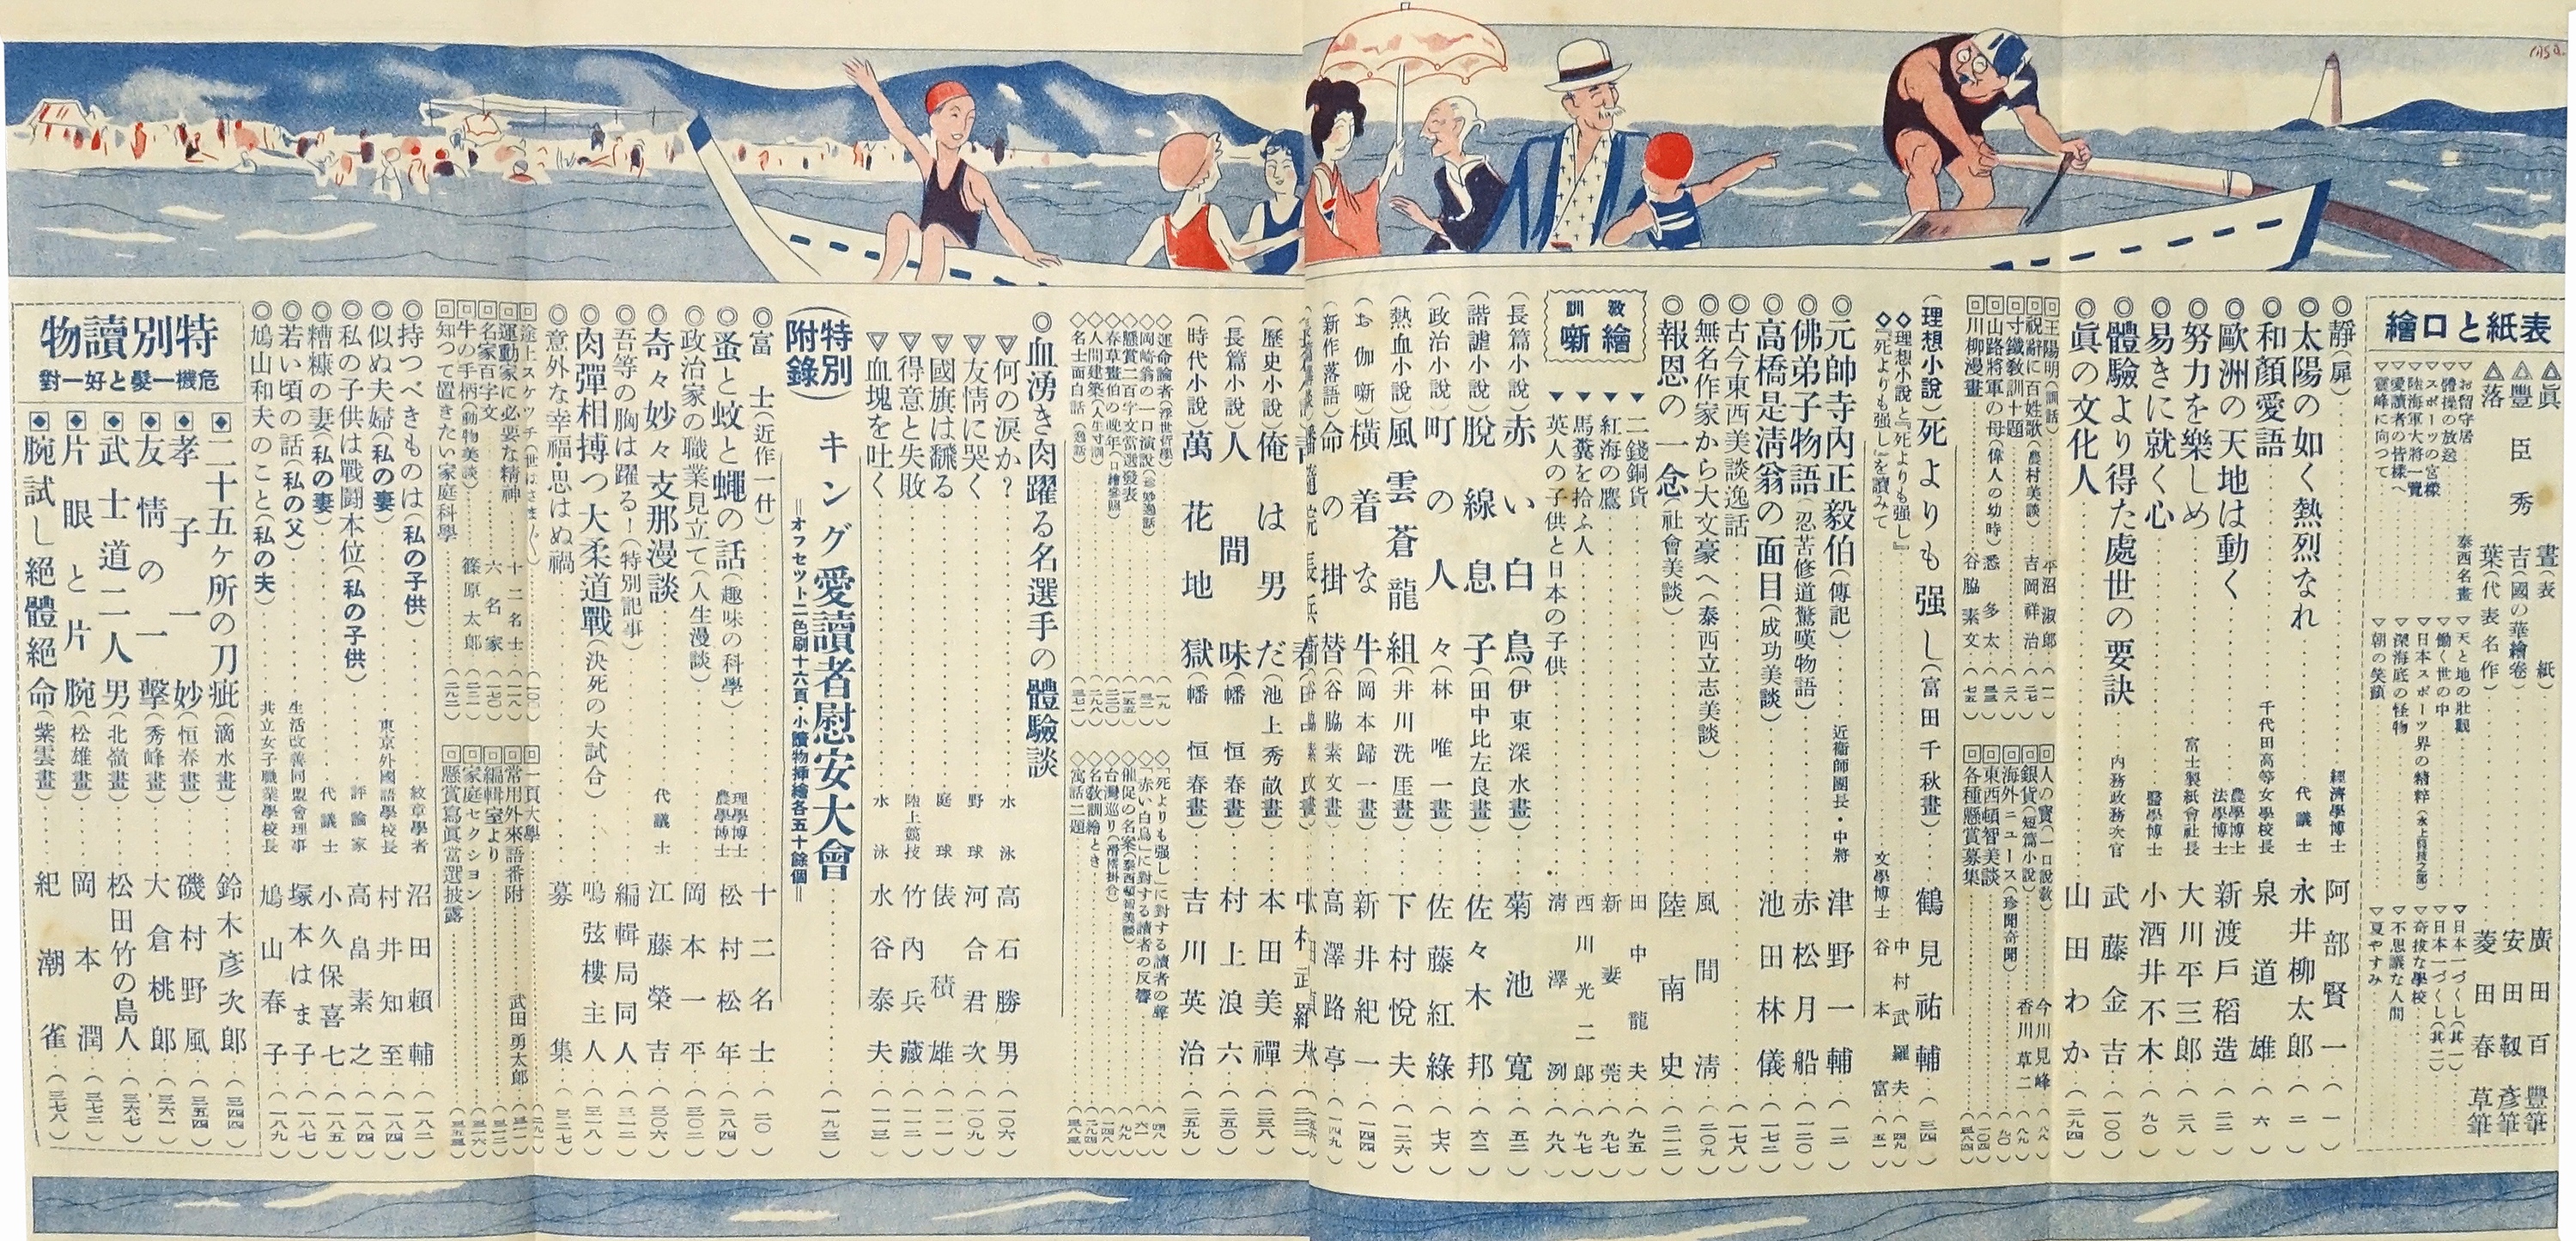 表紙と口繪
◬眞晝(表紙)……廣田百豐筆
◬豐臣秀吉(國の華繪卷)……安田靱彥筆
◬落葉(代表名作)……菱田春草筆
▽お留守居……泰西名畫
▽體操の放送
▽スポーツの宮樣
▽陸海軍大將一覽
▽愛讀者の皆樣へ
▽靈峰に向つて
▽天と地の壯觀
▽働く世の中
▽日本スポーツ界の精粹
▽深海底の怪物
▽朝の笑顏
▽日本一づくし(其一)
▽日本一づくし(其二)
▽奇拔な學校
▽不思議な人間
▽夏やすみ
◎靜(扉)……經濟學博士 阿部賢一(一)
◎太陽の如く熱烈なれ……代議士 永井柳太郎(二)
◎和顏愛語……千代田高等女學校長 泉道雄(六)
◎歐洲の天地は動く……農學博士 法學博士 新渡戶稻造(三二)
◎努力を樂しめ……富士製紙會社長 大川平三郎(二八)
◎易きに就く心……醫學博士 小酒井不木(九〇)
◎體驗より得た處世の要訣……內務政務次官 武藤金吉(一〇〇)
◎眞の文化人……山田わか(二九四)
回王陽明(訓話)……平沼淑郎(一一)
回祝辭に百姓歌(農村美談)……吉岡祥治(二七)
回寸鐵敎訓十題……(二八)
回山路將軍の母(偉人の幼時)……悉多太
回川柳漫畫……谷脇素文(七五)
回人の寶(一口說敎)……今川見峰(八八)
回銀貨(短篇小說)……香川草二(八九)
回海外ニュース(珍聞奇聞)……(九〇)
回東西頓智美談……(一〇四)
回各種懸賞募集……(三八四)
(理想小說)死よりも强し(富田千秋畫)……鶴見祐輔(三四)
◇『理想小說と『死よりも强し』……中村武羅夫(四九)
◇『死よりも强し』を讀みて……文學博士 谷本富(五一)
◎元帥寺內正毅伯(傳記)……近衞師團長・中將 津野一輔(一二)
◎佛弟子物語(忍苦修道驚嘆物語)……赤松月船(一二〇)
◎高橋是淸翁の面目(成功美談)……池田林儀(一七二)
◎古今東西美談逸話……(一七八)
◎無名作家から大文豪へ(泰西立志美談)……風間淸(二〇九)
◎報恩の一念(社會美談)……陸南史(二一二)
敎訓繪噺
▼二錢銅貨……田中龍夫(九五)
▼紅海の鷹……新妻莞(九七)
▼馬糞を拾ふ人……西川光二郎(九七)
▼英人の子供と日本の子供……淸澤洌(九八)
(長篇小說)赤い白鳥(伊東深水畫)……菊池寬(五二)
(諧謔小說)脫線息子(田中比左良畫)……佐々木邦(六二)
(政治小說)町の人々(林唯一畫)……佐藤紅綠(七六)
(熱血小說)風雲蒼龍組(井川洗厓畫)……下村悅夫(一二六)
(お伽噺)橫着な牛(岡本歸一畫)……新井紀一(一四四)
(新作落語)命の掛替(谷脇素文畫)……高澤路亭(一四九)
(歷史小說)俺は男だ(池上秀畝畫)……本田美禪(二三八)
(長篇小說)人間味(幡恒春畫)……村上浪六(二五〇)
(時代小說)萬花地獄(幡恒春畫)……吉川英治(二五九)
◇運命論者(浮世哲學)……(一九)
◇岡崎翁の一口演說(珍妙逸話)……(三一)
◇懸賞二百字文當選發表……(一五五)
◇春草畫伯の晚年(口繪參照)……(二三〇)
◇人間建築(人生寸訓)……(二九八)
◇名士面白話(逸話)……(三七一)
◇『死よりも强し』に對する讀者の聲……(四八)
◇『赤い白鳥』に對する讀者の反響……(六一)
◇催促の名案(泰西頓智美談)……(九九)
◇台灣巡り(滑稽掛合)……(一四八)
◇名敎訓繪とき……(二九四)
◇寓話二題……(三八三)
◎血湧き肉躍る名選手の體驗談
▽何の淚か?……水泳 高石勝男(一〇六)
▽友情に哭く……野球 河合君次(一〇九)
▽國旗は飜る……庭球 俵積雄(一一一)
▽得意と失敗……陸上競技 竹內兵藏(一一二)
▽血塊を吐く……水泳 水谷泰夫(一一三)
(特別附錄)キング愛讀者慰安大會……(一九三)
＝オフセット二色刷十六頁・小讀物挿繪各五十餘個＝
◎富士(近作一什)……十二名士(二〇)
◎蚤と蚊と蠅の話(趣味の科學)……理學博士 農學博士 松村松年(二八四)
◎政治家の職業見立て(人生漫談)……岡本一平(三〇二)
◎奇々妙々支那漫談……代議士 江藤榮吉(三〇六)
◎吾等の胸は躍る!(特別記事)……編輯局同人(三一二)
◎肉彈相搏つ大柔道戰(決死の大試合)……嗚弦樓主人(三一八)
◎意外な幸福・思はぬ禍……募集(三二七)
回途上スケッチ(世はさまざま)……(一〇〇)
回運動家に必要な精神……十二名士(一一八)
回名家百字文……六名家(一七〇)
回牛の手柄(動物美談)……篠原太郎(二一一)
回知つて置きたい家庭科學……(二九二)
回一頁大學
回常用外來語番附……武田勇太郎
回編輯室より
回家庭セクション
回懸賞寫眞當選披露
◎持つべきものは(私の子供)……紋章學者 沼田賴輔(一八二)
◎似ぬ夫婦(私の妻)……東京外國語學校長 村井知至(一八四)
◎私の子供は戰鬪本位(私の子供)……評論家 高畠素之(一八四)
◎糟糠の妻(私の妻)……代議士 小久保喜七(一八五)
◎若い頃の話(私の父)……生活改善同盟會理事 塚本はま子(一八七)
◎鳩山和夫のこと(私の夫)……共立女子職業學校長 鳩山春子(一八九)
特別讀物
危機一髮と好一對
二十五ヶ所の刀疵(滴水畫)……鈴木彥次郎(三四四)
孝子一妙(恒春畫)……磯村野風(三五四)
友情の一擊(秀峰畫)……大倉桃郎(三六一)
武士道二人男(北嶺畫)……松田竹の島人(三六七)
片眼と片腕(松雄畫)……岡本潤(三七二)
腕試し絕體絕命(紫雲畫)……紀潮雀(三七八)